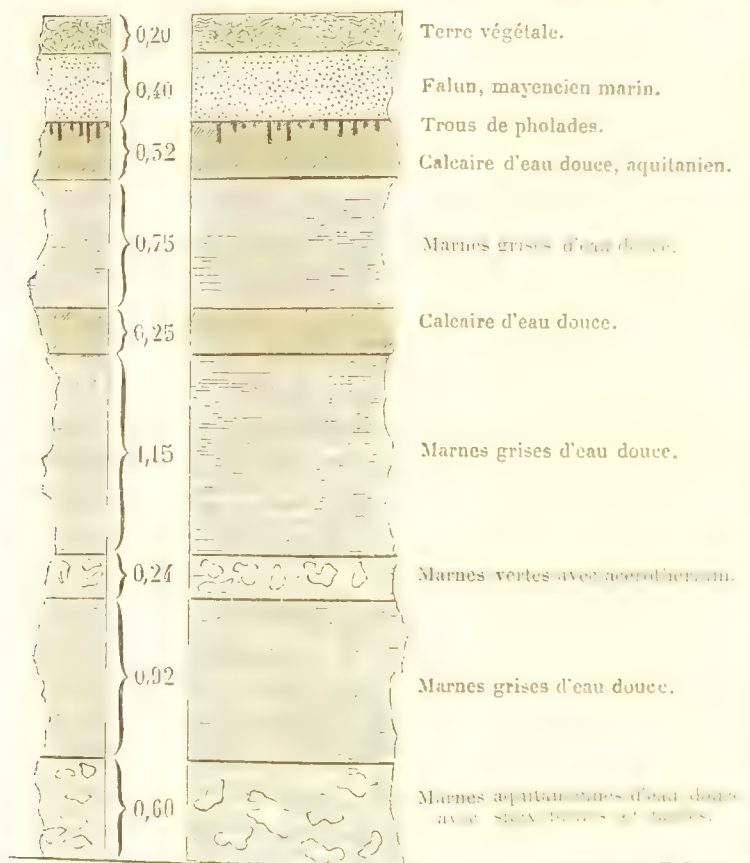 0,20 Terre végétale.
0,40 Falun, mayencien marin.
Trous de pholades.
0,52 Calcaire d'eau douce, aquitanien.
0,75 Marnes grises d'eau douce.
0,25 Calcaire d'eau douce.
1,15 Marnes grises d'eau douce.
0,24 Marnes vertes avec
0,92 Marnes grises d'eau douce.
0,60 Marnes d'eau douce